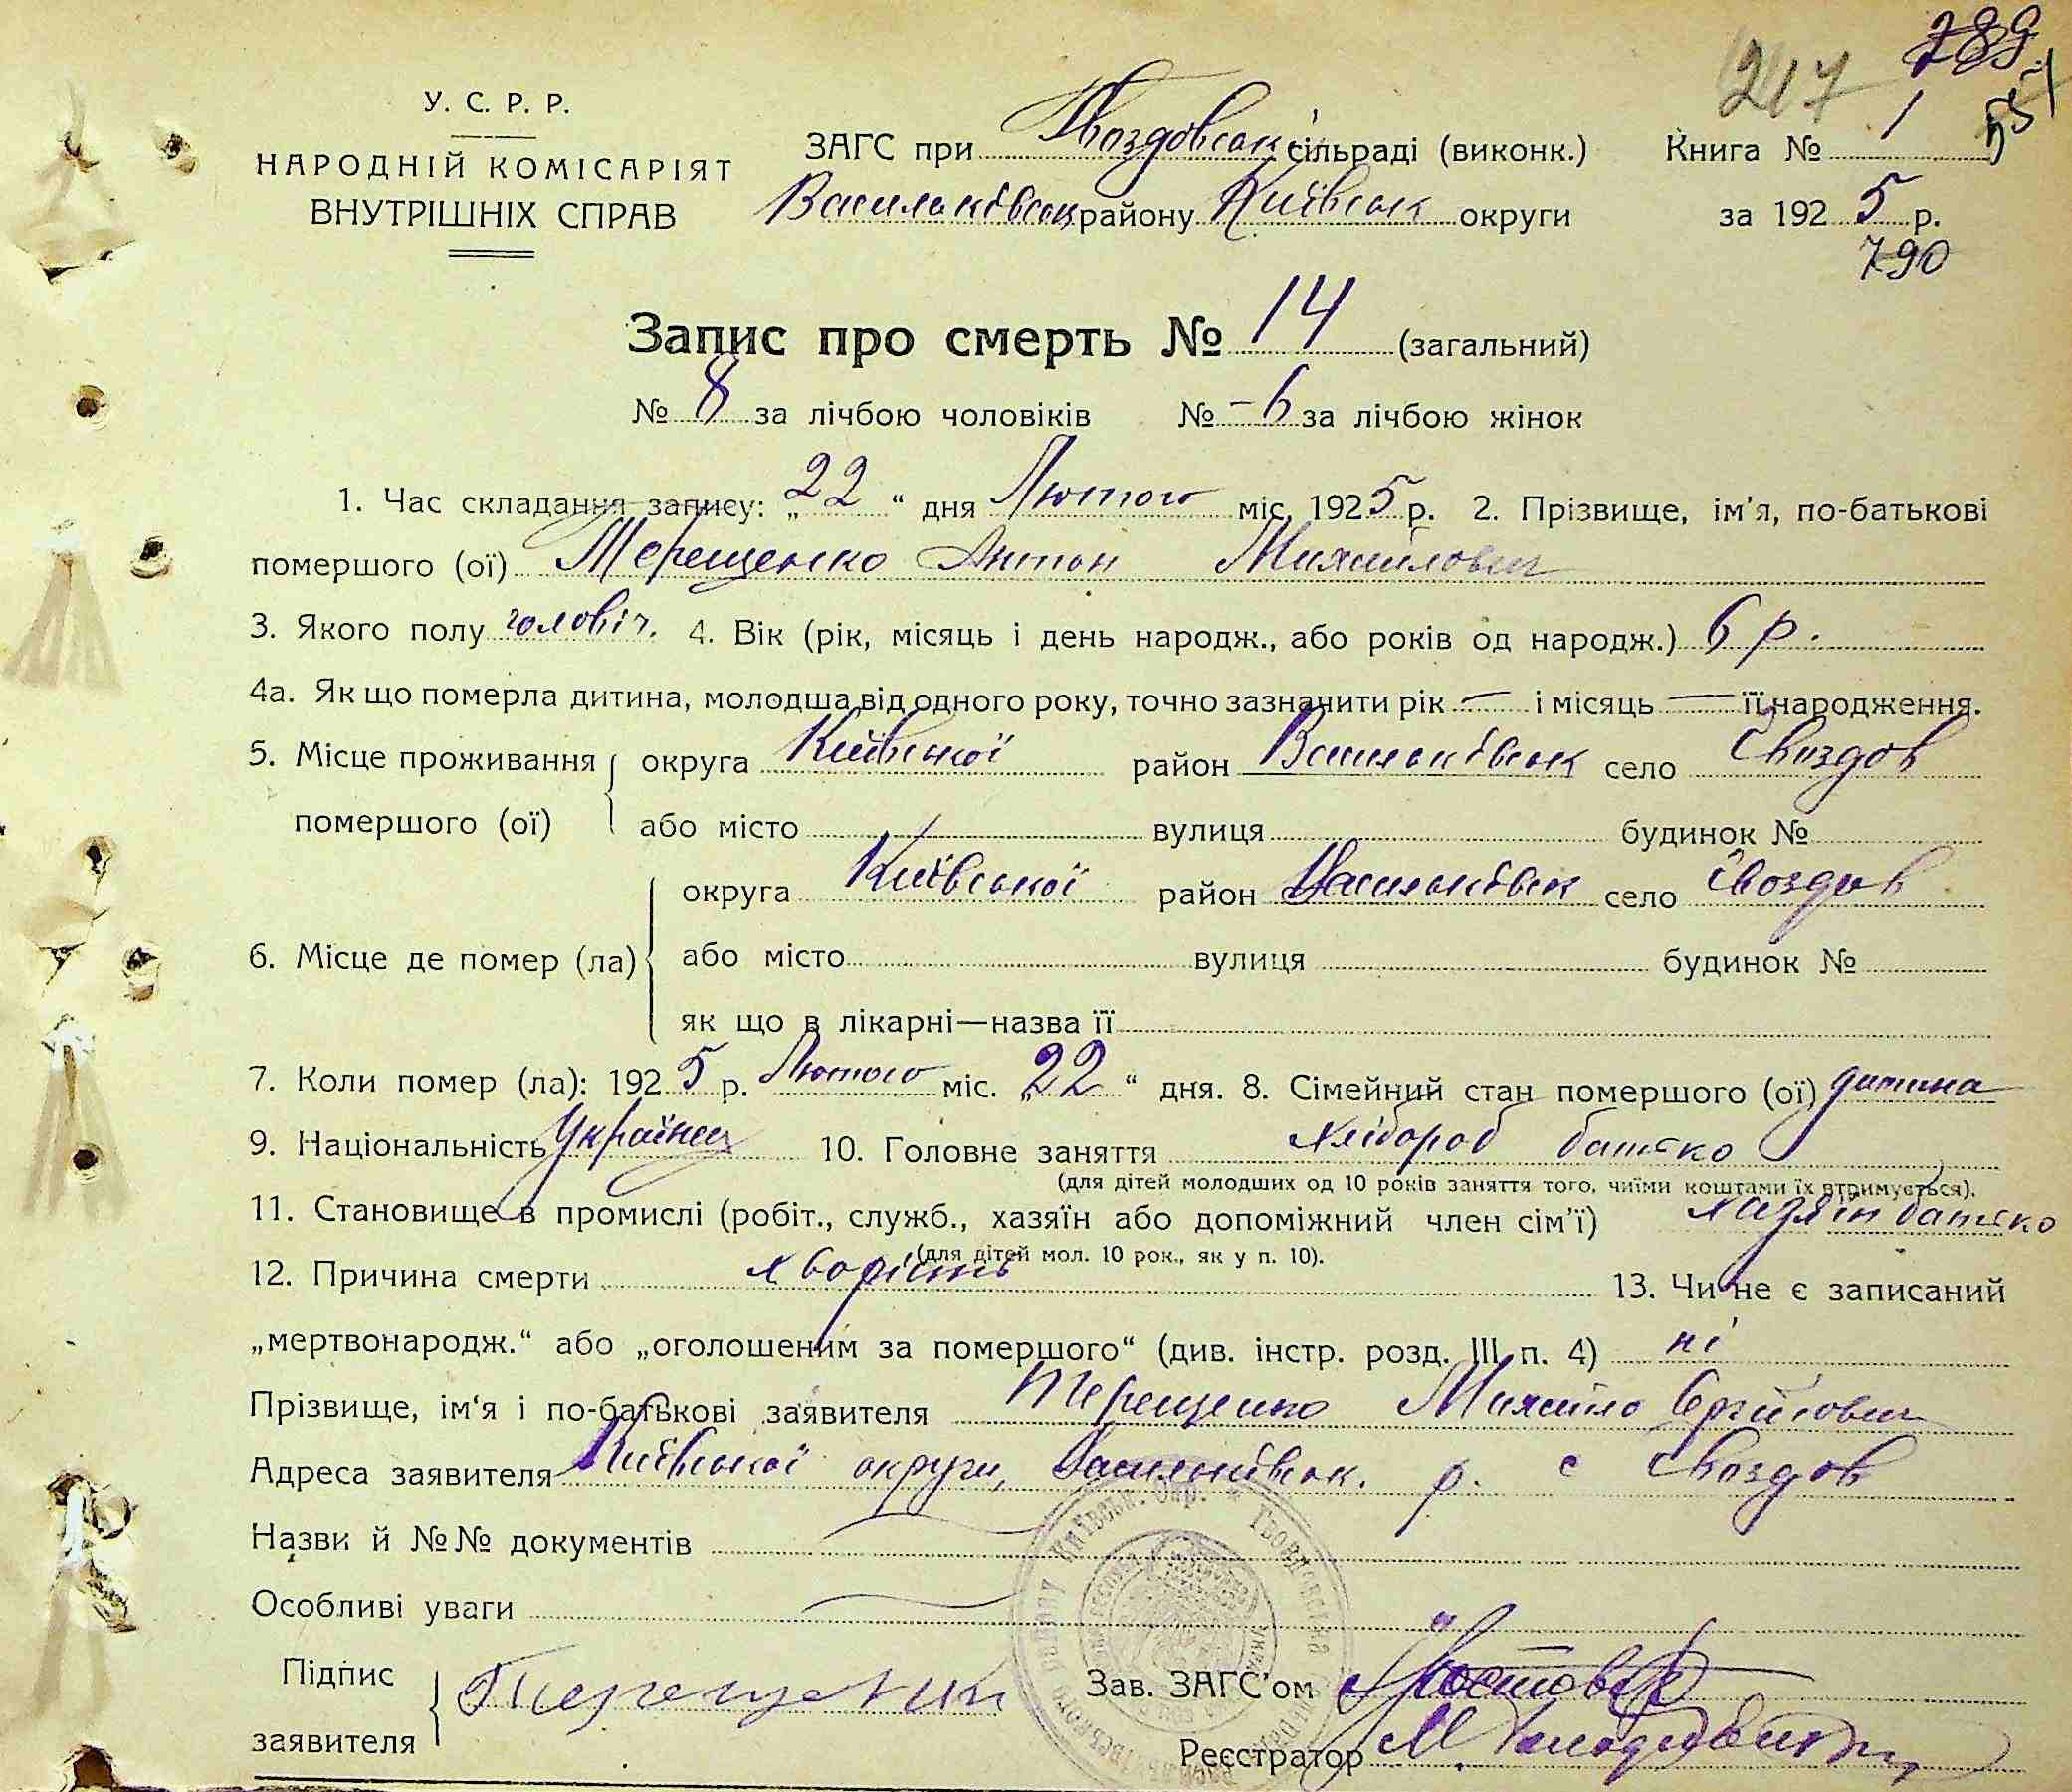 789
217
551
У. С. Р. Р.
НАРОДНІЙ КОМІСАРІЯТ
ВНУТРІШНІХ СПРАВ
ЗАГС при Гвоздовськ сільраді (виконк.)
Васильківськ району Київськ округи
Книга № 1
за 1925 р.
790
Запис про смерть № 14 (загальний)
№ 8 за лічбою чоловіків № - 6 за лічбою жінок
1. Час складання запису: „22“ дня Лютого міс. 1925 р. 2. Прізвище, ім'я, по-батькові
помершого (ої) Терещенко Антон Михайлович
3. Якого полу чоловіч. 4. Вік (рік, місяць і день народж., або років од народж.) 6 р.
4а. Як що померла дитина, молодша від одного року, точно зазначити рік — і місяць — її народження.
5. Місце проживання округа Київської район Васильківськ село Гвоздов
помершого (ої) або місто вулиця будинок №
округа Київської район Васильківськ село Гвоздов
6. Місце де помер (ла) або місто вулиця будинок №
як що в лікарні—назва її
7. Коли помер (ла): 1925 р. Лютого міс. „22“ дня. 8. Сімейний стан помершого (ої) дитина
9. Національність Українец 10. Головне заняття хлібороб батько
(для дітей молодших од 10 років заняття того, чиїми коштами їх втримується).
11. Становище в промислі (робіт., служб., хазяїн або допоміжний член сім'ї) хазяїн батько
(для дітей мол. 10 рок., як у п. 10).
12. Причина смерти хворість 13. Чи не є записаний
„мертвонародж.“ або „оголошеним за помершого“ (див. інстр. розд. III п. 4) ні
Прізвище, ім'я і по-батькові заявителя Терещенко Михайло
Адреса заявителя Київської округи, Васильківськ. р. с Гвоздов
Назви й №№ документів
Особливі уваги
Підпис
заявителя
Зав. ЗАГС'ом
Реєстратор М.